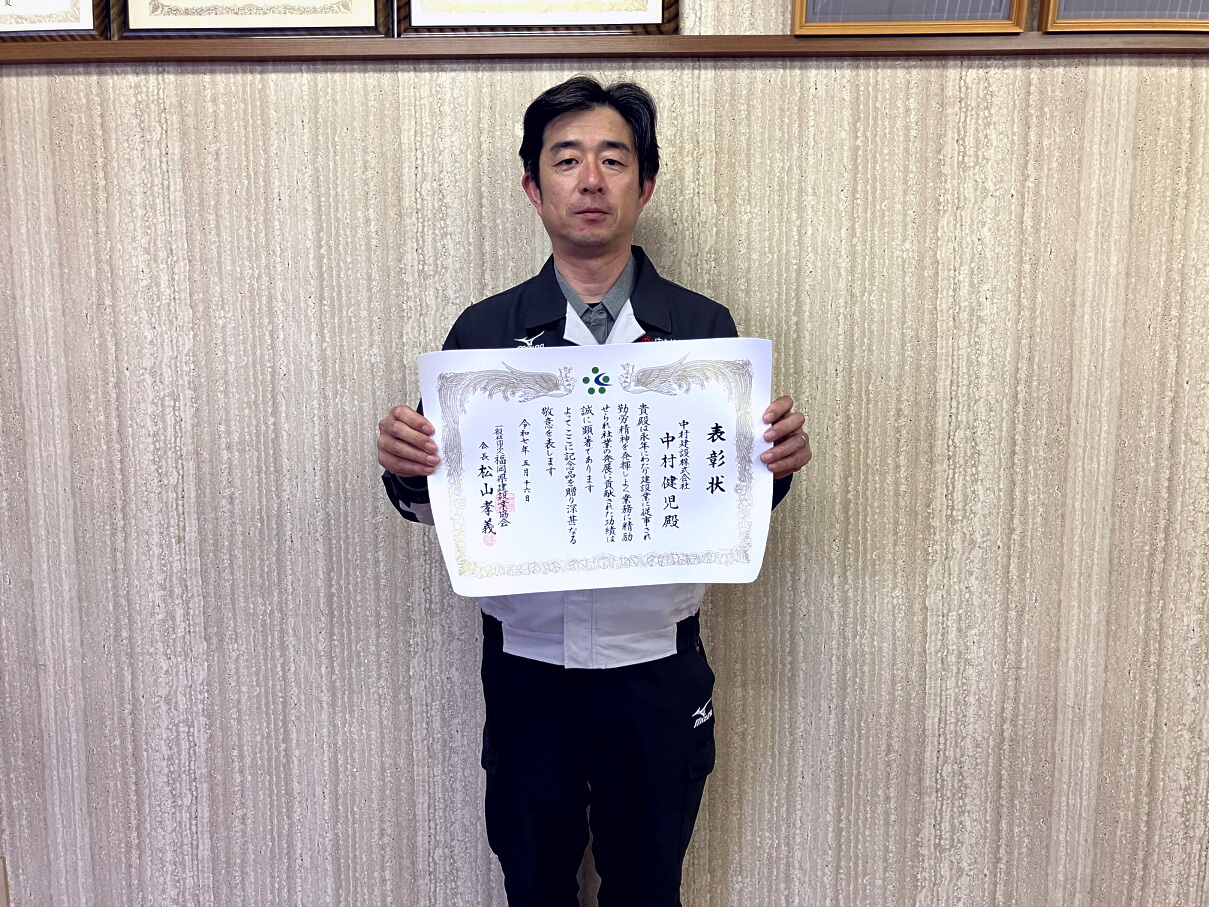 表彰状
中村建設株式会社
中村健児殿
貴殿は永年にわたり建設業に従事され
勤労精神を発揮しよく業務に精励
せられ社業の発展に貢献された功績は
誠に顕著であります
よってここに記念品を贈り深甚なる
敬意を表します
令和七年五月十六日
一般社団法人福岡県建設業協会
会長 松山孝義
MIZUNO